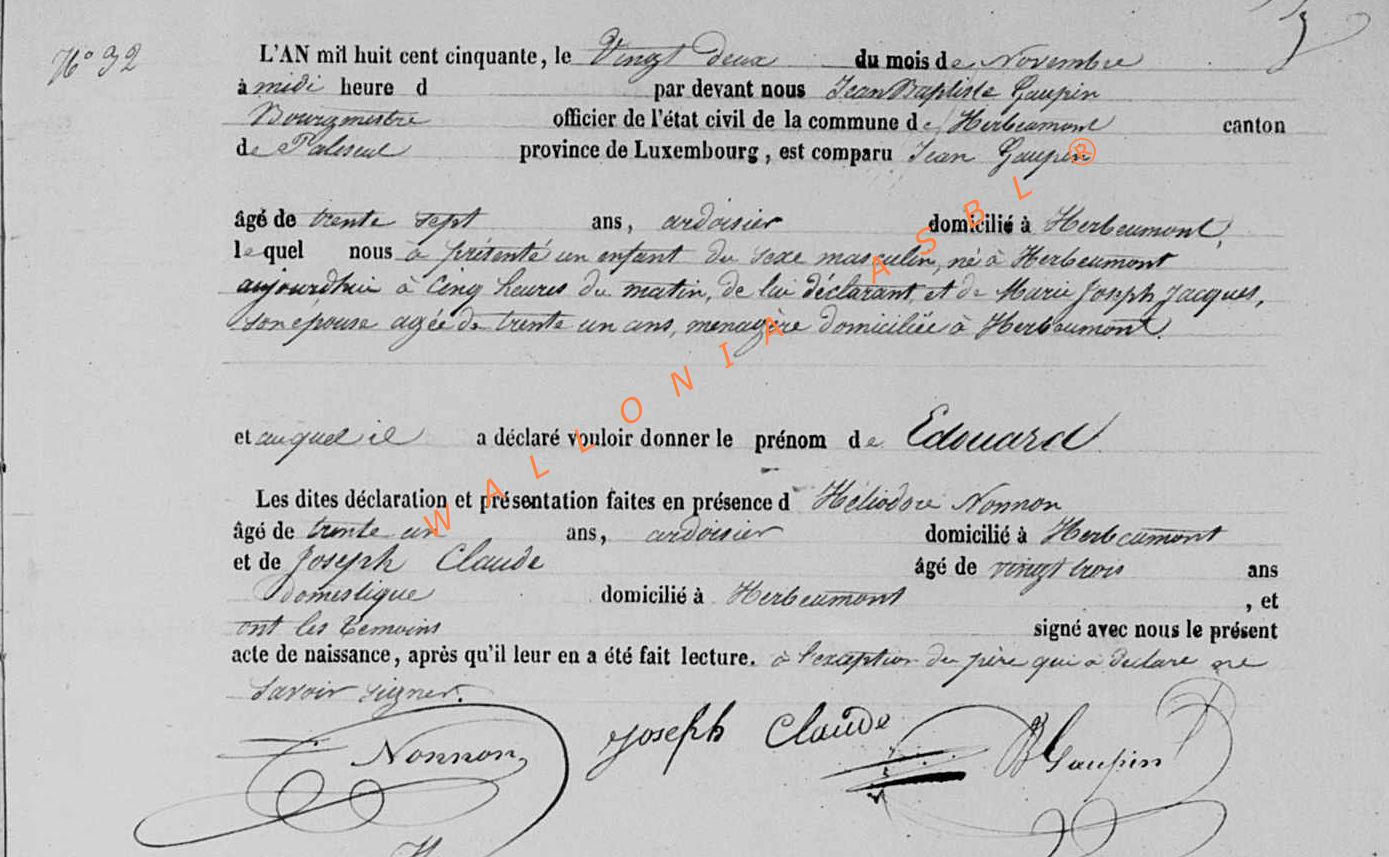 N° 32
L'AN mil huit cent cinquante, le Vingt deux du mois de Novembre
à midi heure d par devant nous Jean Baptiste Gaupin
Bourgmestre officier de l'état civil de la commune de Herbeumont canton
de Paliseul province de Luxembourg, est comparu Jean Gaupin
âgé de trente sept ans, ardoisier domicilié à Herbeumont,
lequel nous à présenté un enfant du sexe masculin, né à Herbeumont
aujourdhui à Cinq heures du matin, de lui déclarant, et de Marie Joseph Jacques,
son épouse agée de trente un ans, menagère domiciliée à Herbeumont.
et auquel il a déclaré vouloir donner le prénom de Edouard
Les dites déclaration et présentation faites en présence d Héliodore Nonnon
âgé de trente un ans, ardoisier domicilié à Herbeumont
et de Joseph Claude âgé de vingt trois ans
domestique domicilié à Herbeumont, et
ont les temoins signé avec nous le présent
acte de naissance, après qu'il leur en a été fait lecture. à l'exception du père qui a declare ne
savoir signer.
Nonnon Joseph Claude JB Gaupin
WALLONIA ASBL ®